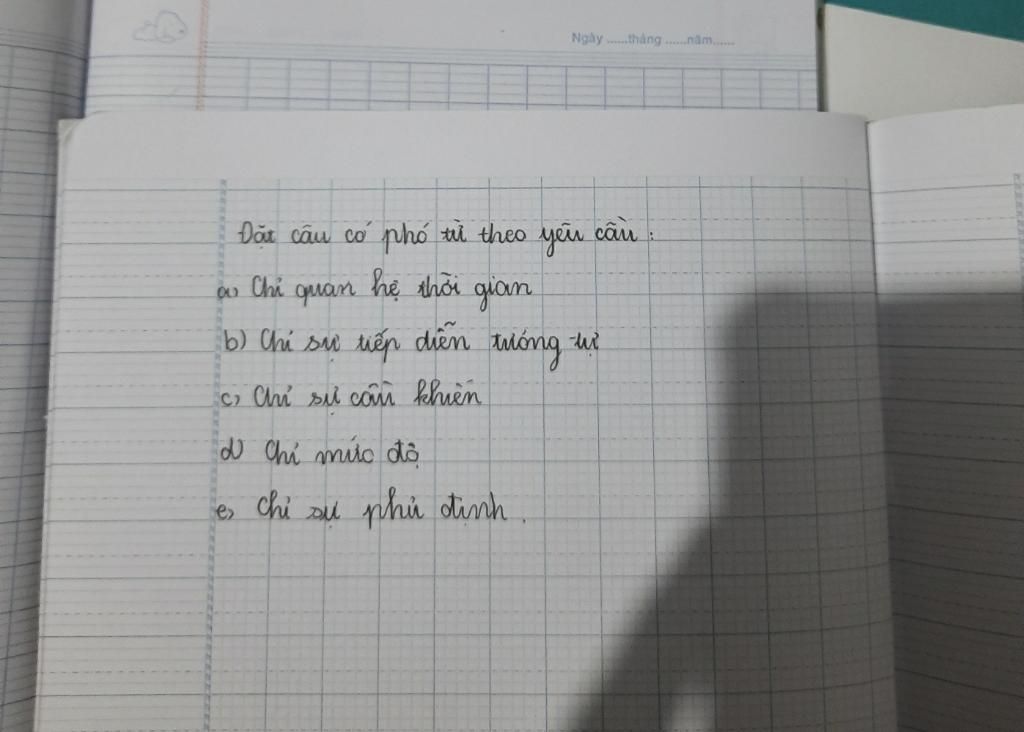 Ngày ......tháng ......năm......
Đặt câu có phó từ theo yêu cầu :
a) Chỉ quan hệ thời gian
b) Chỉ sự tiếp diễn tương tự
c) Chỉ sự cầu khiến
d) Chỉ mức độ
e) Chỉ sự phủ định.